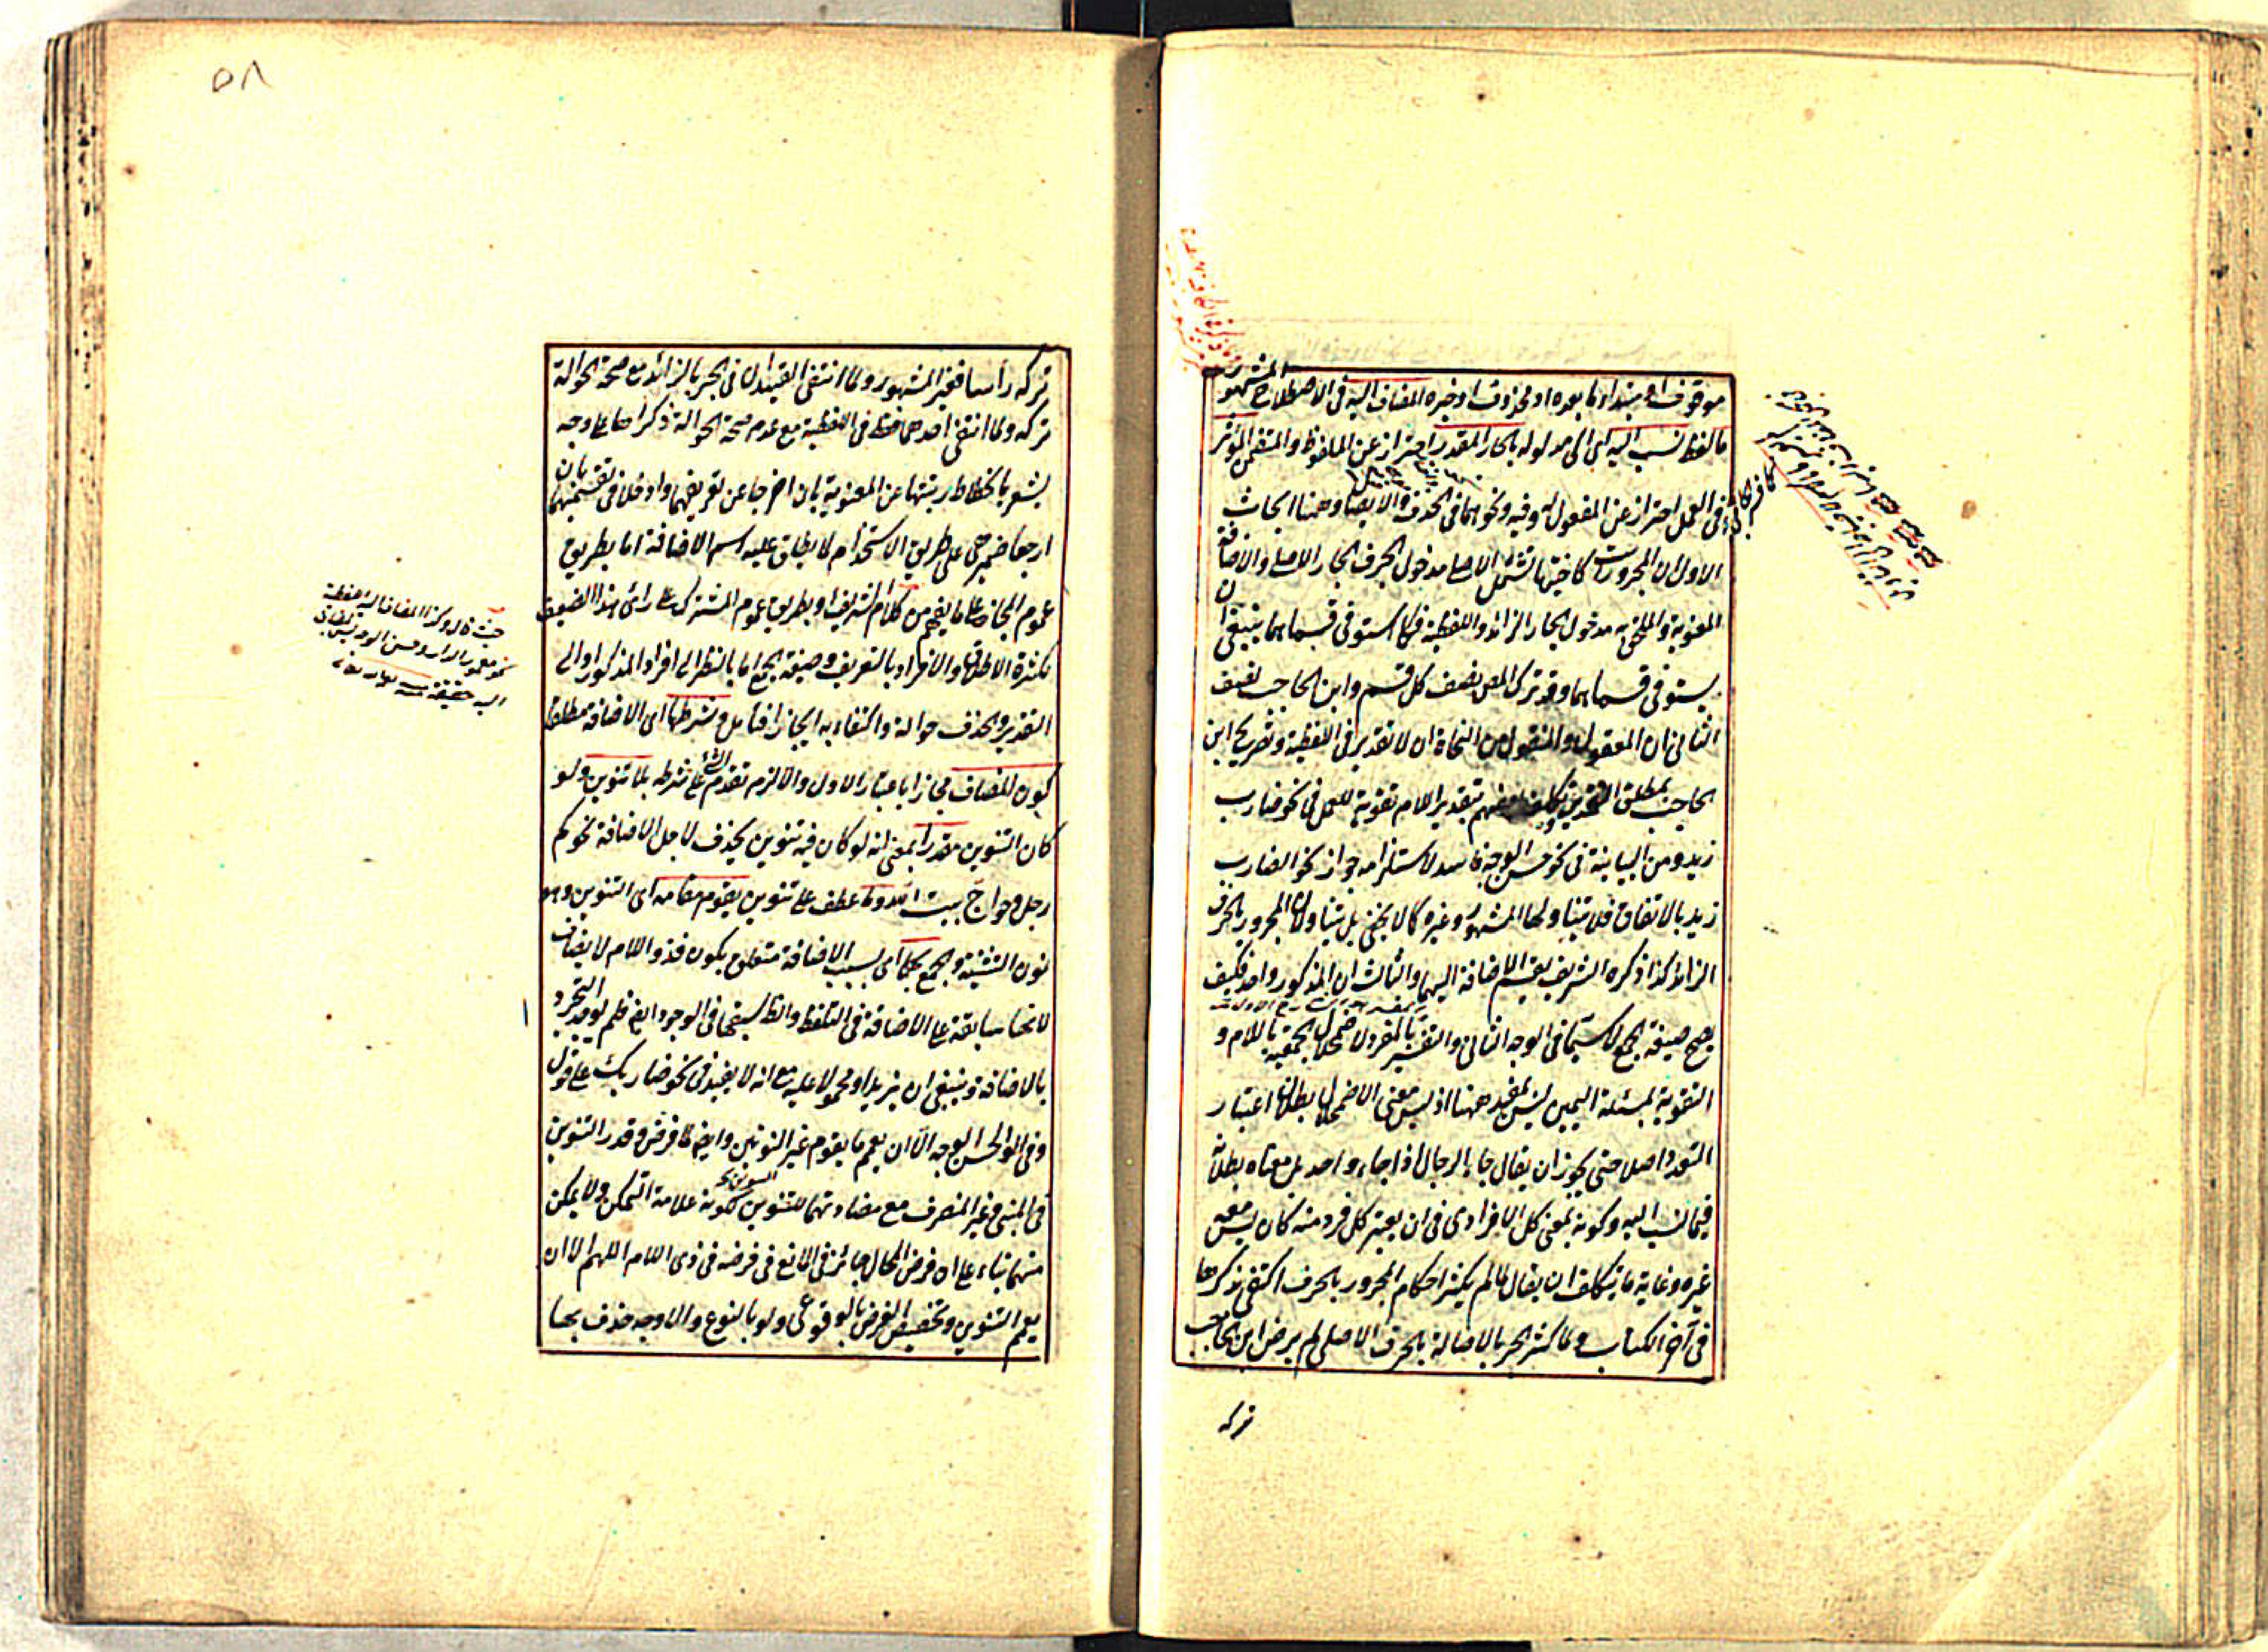 موقوف او مبتدا وما بعده او محذوف او خبره المضاف اليه فى الاصطلاح المشهور
ما لفظ نسب اليه اى الى مدلوله بالجار المقدر احتراز عن الملفوظ والمتضمن المؤثر
فى العمل احتراز عن المفعول له وفيه ونحوهما فى الحذف والايصال وههنا ابحاث
الاول ان المجرورات كاختيها تشمل الاصلى مدخول الحرف الجار الاصلى والاضافة
المعنوية والملحق به مدخول الجار الزائد واللفظية فكما استوفى قسماهما ينبغى ان
يستوفى قسماهما وقد ترك المص نصف كل قسم وابن الحاجب نصف
الثانى ان المعقول والمنقول من النحاة ان لا تقدير فى اللفظية وتصريح ابن
الحاجب بمطلق التقدير وتكلف بعضهم بتقدير اللام تقوية للعمل فى نحو ضارب
زيد ومن البيانية فى نحو حسن الوجه فاسد لاستلزامه جواز نحو الضارب
زيد بالاتفاق فلا يتناولها المشهور وغيره كما لا يخفى بل يتناولان المجرور بالحرف
الزائد كذا ذكره الشريف بقسم الاضافة اليهما والثالث ان المذكور واحد فكيف
يصح صيغة الجمع لا سيما فى الوجه الثانى والتفسير بالمفرد لاضمحلال الجمعية باللام و
التقوية بمسئلة اليمين ليس بمفيد ههنا اذ ليس معنى الاضمحلال بطلان اعتبار
التعدد اصلا حتى يجوز ان يقال جاء الرجال اذا جاء واحد بل معناه بطلانه
فيما نسب اليه وكونه بمعنى كل الافرادى فى ان يعتبر كل فرد منه كان ليس معه
غيره وغاية ما يتكلف ان يقال لما لم يكثر احكام المجرور بالحرف اكتفى بذكرها
فى آخر الكتاب ولما كثر الجر بالاضالة بالحرف الاصلى لم يرض ابن الحاجب
تركه
٥٨
تركه رأسا فغير المشهور ولما انتفى القيدان فى الجر بالزائد مع صحة الحوالة
تركه ولما انتفى احدهما فقط فى اللفظية مع عدم صحة الحوالة ذكراها على وجه
يشعر بانحطاط رتبتها عن المعنوية بان اخرجا عن تعريفهما وادخلا فى تقسيمهما بان
ارجعا ضميرهى على طريق الاستخدام لا يطلق عليه اسم الاضافة اما بطريق
عموم المجاز على ما يفهم من كلام الشريف او بطريق عموم المشترك على رأى هذا الضعيف
لكثرة الاطلاق والافراد بالتعريف وصيغة الجمع اما بالنظر الى افراد المذكور او الى
التقدير والحذف حوالة واكتفاء به ايجازا فتأمل وشرطها اى الاضافة مطلقا
كون المضاف مجازا باعتبار الاول والا لزم تقدم الشئ على شرطه بلا تنوين ولو
كان التنوين مقدرا بمعنى انه لو كان فيه تنوين يحذف لاجل الاضافة نحو كم
رجل وحواج بيت الله وما عطف على تنوين يقوم مقامه اى التنوين وهو
نون التثنية والجمع لها اى بسبب الاضافة متعلق بكون فذو اللام لا يضاف
لانها سابقة على الاضافة فى التلفظ والظ سبقها فى الوجود ايضا فلم يوجد التجرد
بالاضافة وينبغى ان يزيد او محمولا عليه مع انه لا يفيد فى نحو ضاربك على قول
وفى الحسن الوجه الا ان يعمم ما يقوم غير النونين وايضا لما فرض وقدر التنوين
فى المبنى وغير المنصرف مع مضادتهما للتنوين لكونه علامة التمكن ولا يمكن
منهما بناء على ان فرض المحال جائز فى المانع فى فرضه فى ذى اللام اللهم الا ان
يعم التنوين وتخصيص الفرض بالوقوعى ولو بالنوع والاوجه حذف بها